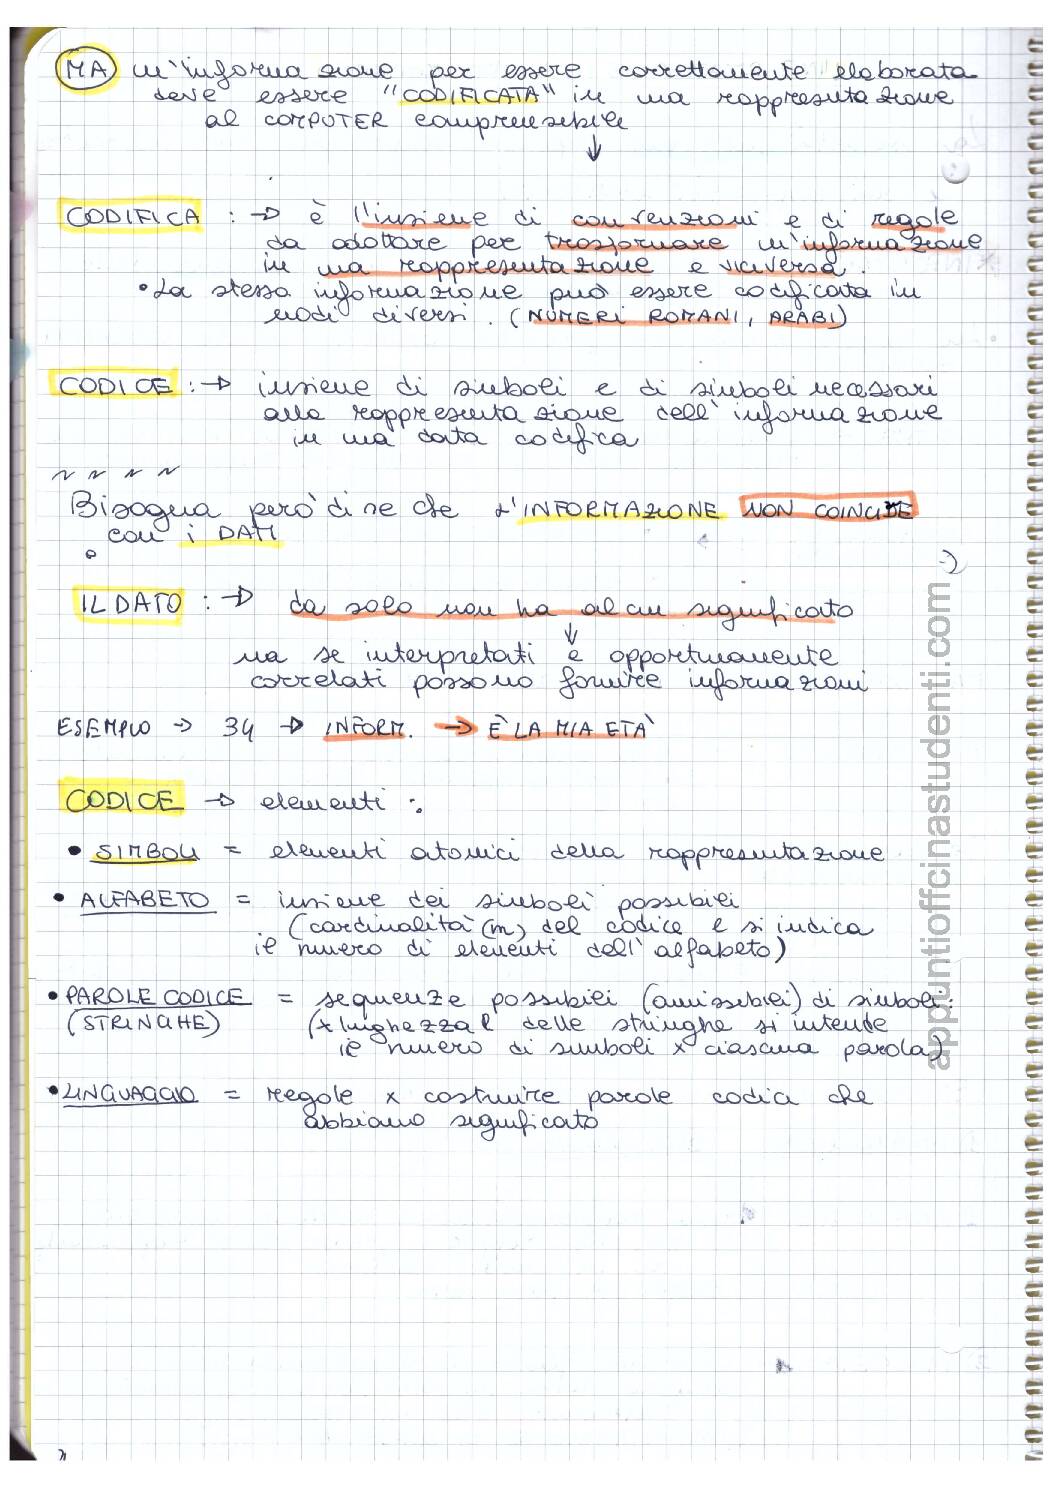 MA un'informazione per essere correttamente elaborata
deve essere "CODIFICATA" in una rappresentazione
al COMPUTER comprensibile
↓
CODIFICA : → è l'insieme di convenzioni e di regole
da adottare per trasformare un'informazione
in una rappresentazione e viceversa.
• La stessa informazione può essere codificata in
modi diversi. (NUMERI ROMANI, ARABI)
CODICE : → insieme di simboli e di simboli necessari
alla rappresentazione dell'informazione
in una data codifica
~ ~ ~ ~
Bisogna però dire che L'INFORMAZIONE NON COINCIDE
con i DATI
:-)
IL DATO : → da solo non ha alcun significato
↓
ma se interpretati e opportunamente
correlati possono fornire informazioni
ESEMPIO → 34 → INFORM. → È LA MIA ETÀ
CODICE → elementi :
• SIMBOLI = elementi atomici della rappresentazione
• ALFABETO = insieme dei simboli possibili
(cardinalità (m) del codice e si indica
il numero di elementi dell'alfabeto)
• PAROLE CODICE = sequenze possibili (ammissibili) di simboli:
(STRINGHE) (x lunghezza l delle stringhe si intende
il numero di simboli x ciascuna parola)
• LINGUAGGIO = regole x costruire parole codici che
abbiano significato
appuntiofficinastudenti.com